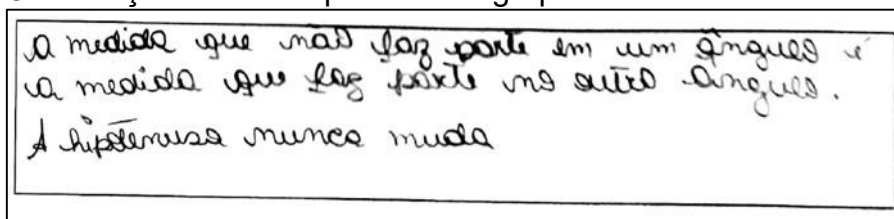 a medida que não faz parte em um ângulo é
a medida que faz parte no outro ângulo.
A hipotenusa nunca muda